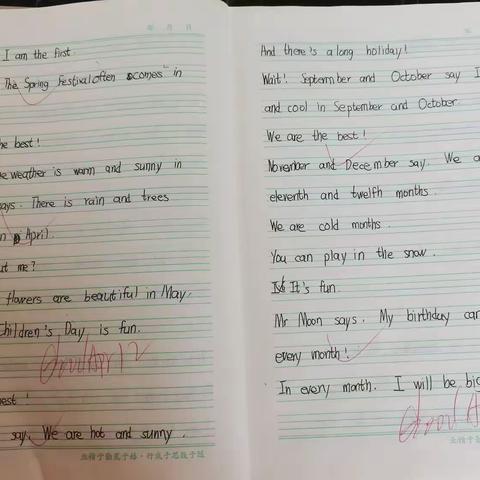 年 月 日
I am the first
The Spring Festival often comes in
he best!
e weather is warm and sunny in
ays. There is rain and trees
n April.
ut me?
flowers are beautiful in May.
Children's Day is fun.
Good Apr 12
est!
say. We are hot and sunny.
业精于勤荒于嬉·行成于思毁于随
And there's a long holiday!
Wait! September and October say I
and cool in September and October
We are the best!
November and December say. We a
eleventh and twelfth months.
We are cold months.
You can play in the snow.
It's fun.
Mr Moon says. My birthday can
every month!
In every month. I will be big
Good A
业精于勤